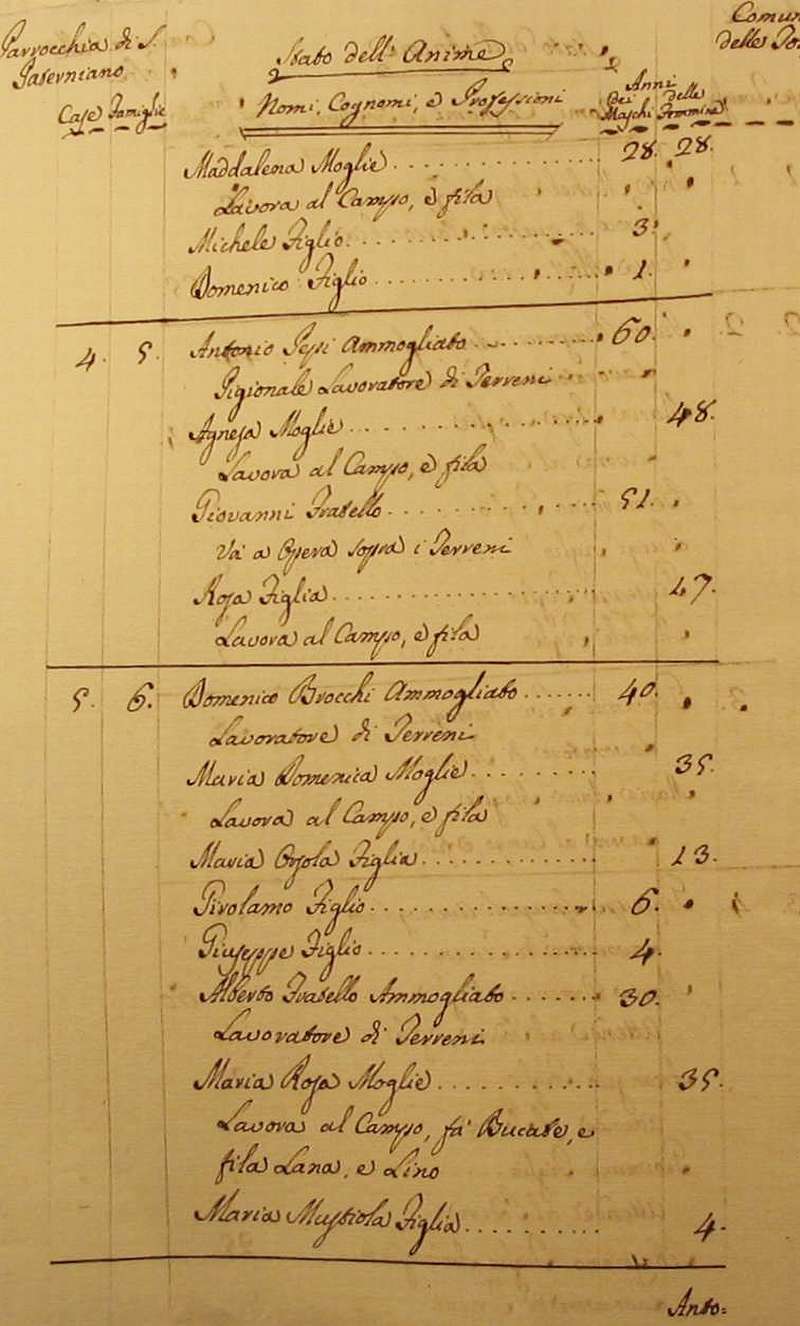 Parrocchia di S.
Paterniano
Case Famiglie
Stato dell' Anime
Nomi, Cognomi, e Professioni
Anni
Dei Maschi Delle Femmine
Comun
delle Po
Maddalena Moglie 28. 28.
Lavora al Campo, e fila
Michele Figlio 3.
Domenico Figlio 1.
4. 5. Antonio Pessi Ammogliato 60.
Pigionale Lavoratore di Terreni
Agnesa Moglie 48.
Lavora al Campo, e fila
Giovanni Fratello 51.
Và a Opera sopra i Terreni
Rosa Figlia 17.
Lavora al Campo, e fila
5. 6. Domenico Brocchi Ammogliato 40.
Lavoratore di Terreni
Maria Domenica Moglie 35.
Lavora al Campo, e fila
Maria Orsola Figlia 13.
Girolamo Figlio 6.
Giuseppe Figlio 4.
Alberto Fratello Ammogliato 30.
Lavoratore di Terreni
Maria Rosa Moglie 35.
Lavora al Campo, fà Bucate, e
fila Lana, e Lino
Maria Mustiola Figlia 4.
Anto=